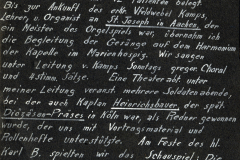 Bis zur Ankunft des erbl. Wohlwebel Kamps,
Lehrer, u. Organist an St. Joseph in Aachen, der
ein Meister des Orgelspiels war, übernahm ich
die Begleitung der Gesänge auf dem Harmonium
der Kapelle im Marienhospiz. Wir sangen
unter Leitung v. Kamps. Sonntags gregor. Choral
und 4 stimm. Sätze. Eine Theaterabt. unter
meiner Leitung veranst. mehrere Soldatenabende,
bei der auch Kaplan Heinrichsbauer der spät.
Diözesan-Präses in Köln war, als Redner gewonnen
wurde, der uns mit Vortragsmaterial und
Rollenhefte unterstützte. Am Feste des hl.
Karl B. spielten wir das Schauspiel: Die